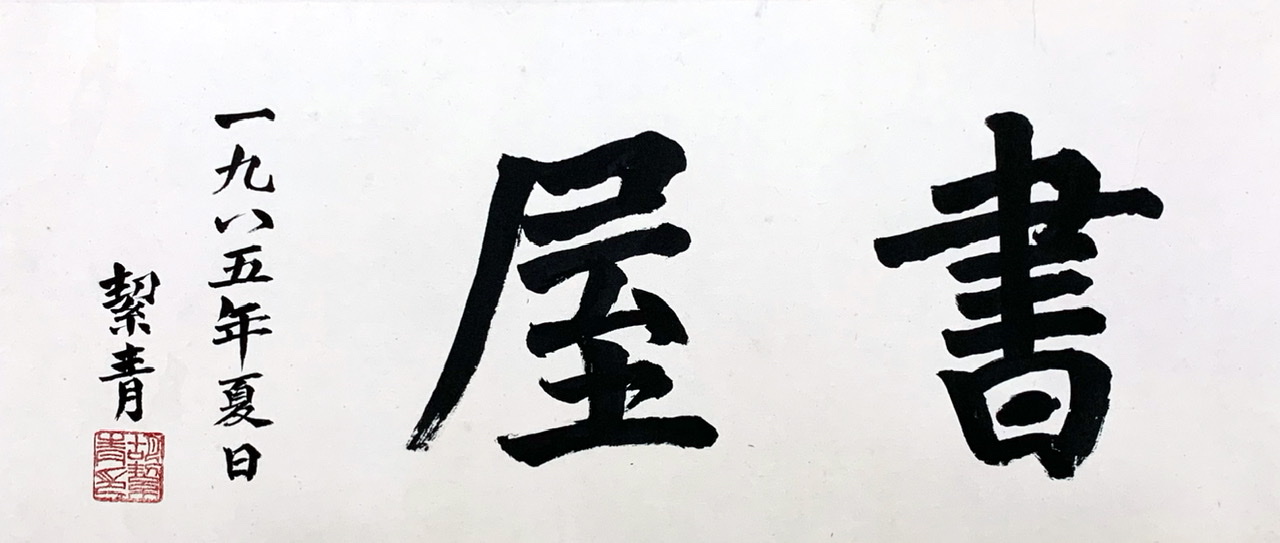 書屋
一九八五年夏日
絜青
胡絜青印